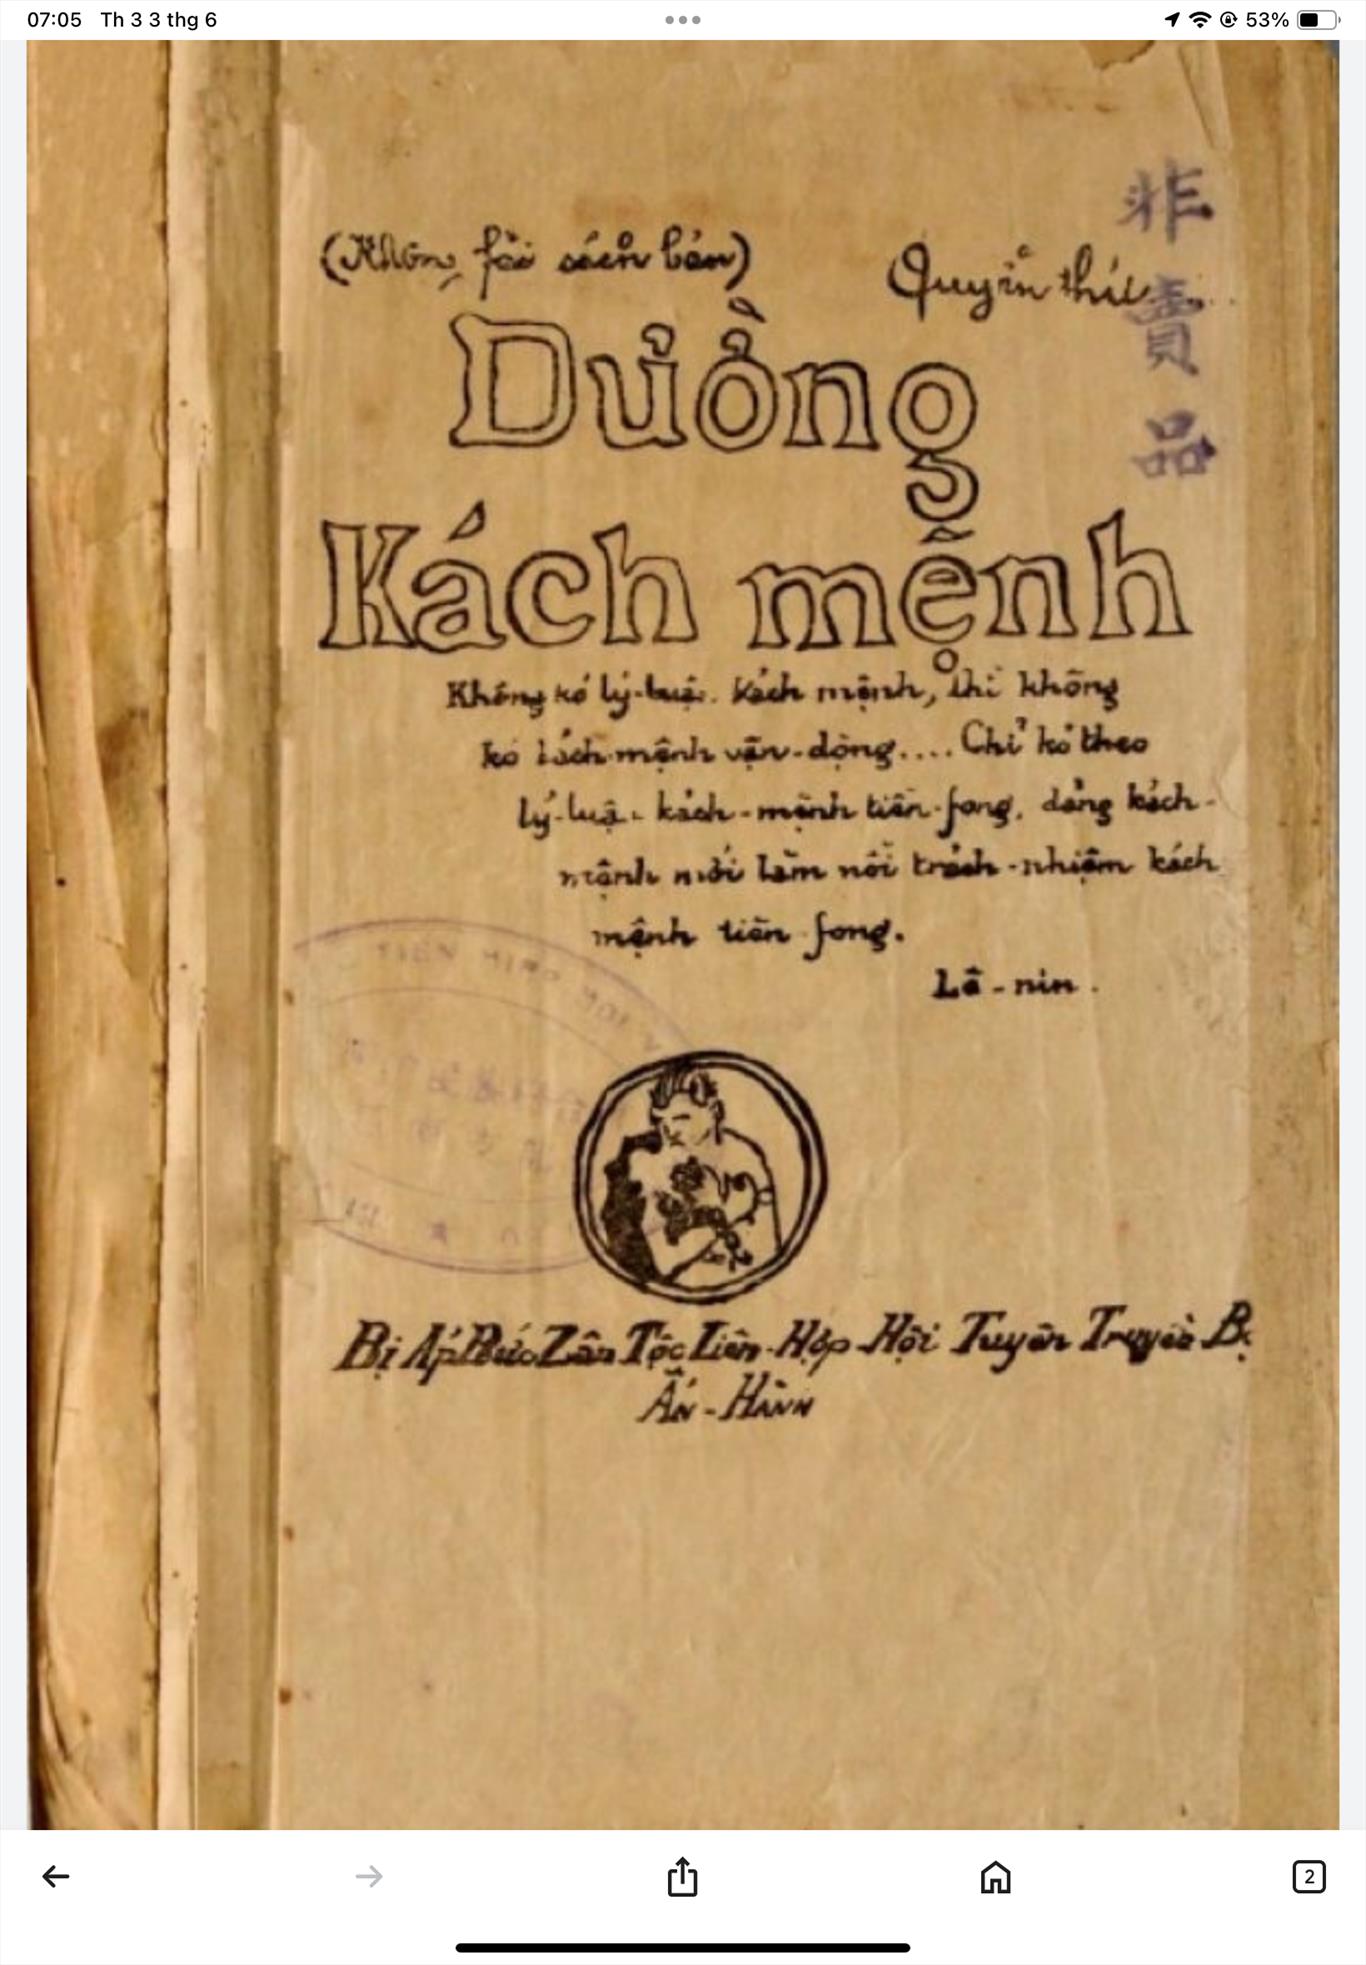 07:05 Th 3 3 thg 6
53%
(Không fải sách bán)
Quyển thứ
非賣品
Dường
Kách mệnh
Không kó lý-luận kách mệnh, thì không
kó kách mệnh vận-dộng.... Chỉ kó theo
lý-luận kách-mệnh tiền-fong, dảng kách-
mệnh mới làm nổi trách-nhiệm kách
mệnh tiền fong.
Lê-nin.
Bị Áp Bức Zân Tộc Liên-Hợp Hội Tuyên Truyền Bộ
Ấn-Hành
2